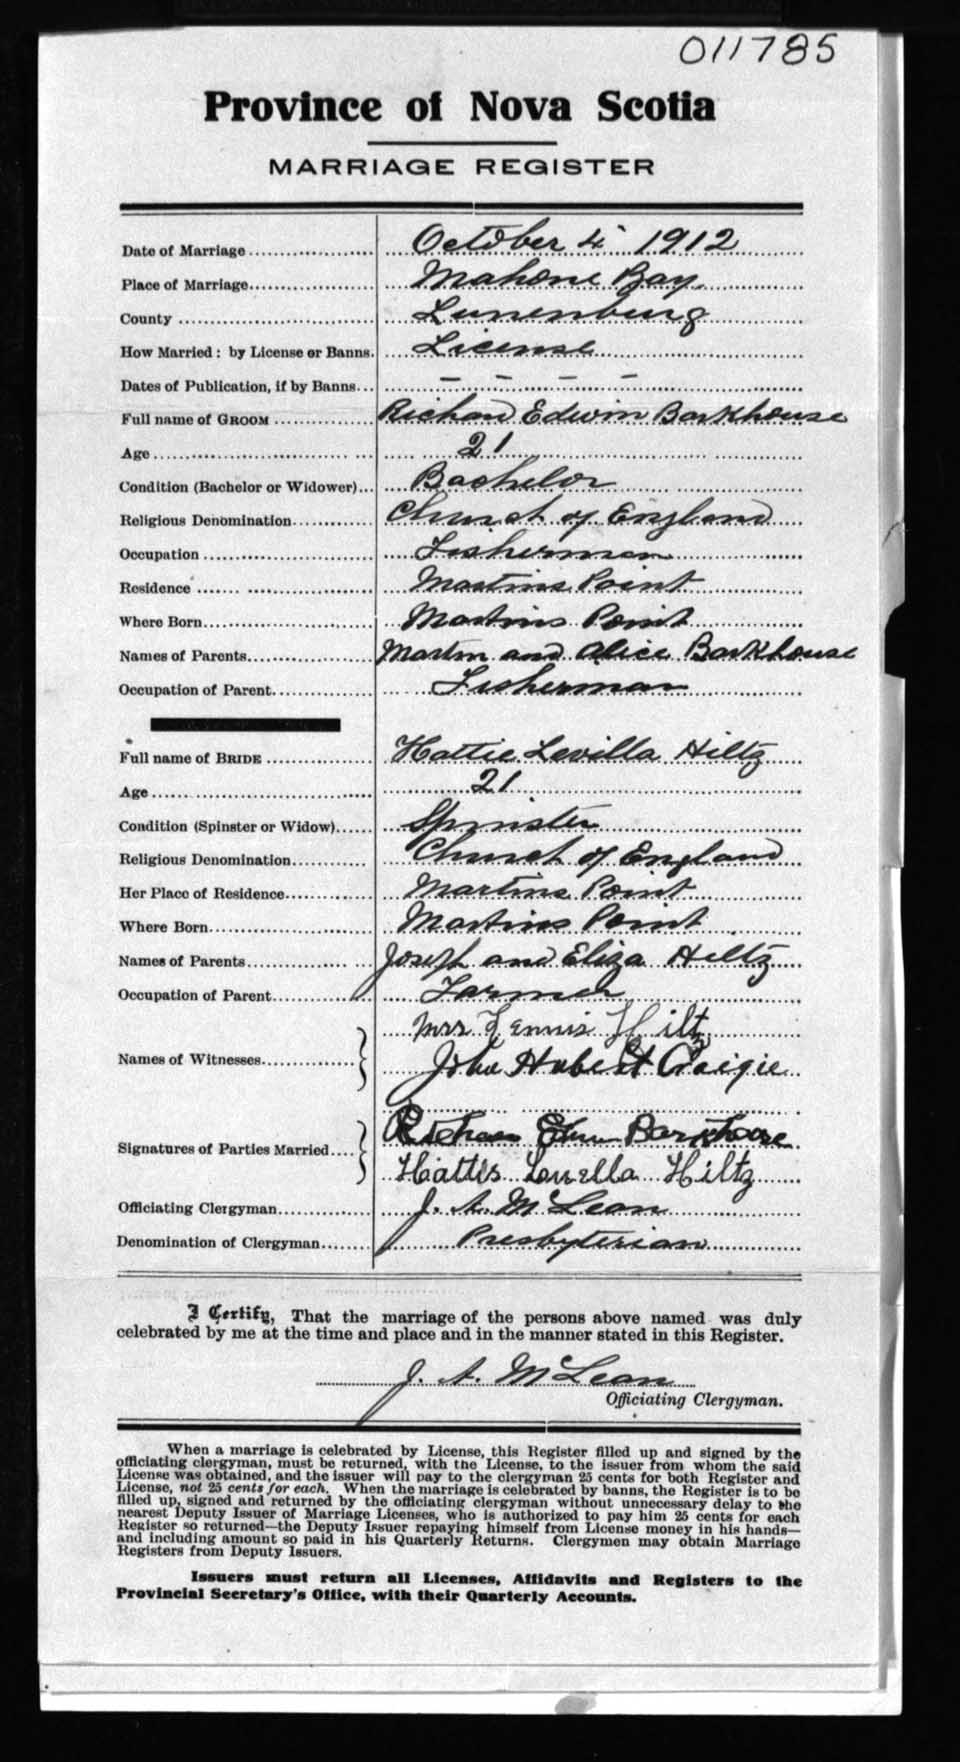 011785
Province of Nova Scotia
MARRIAGE REGISTER
Date of Marriage October 4 1912
Place of Marriage Mahone Bay
County Lunenburg
How Married: by License or Banns. License
Dates of Publication, if by Banns - - - -
Full name of GROOM Richard Edwin Barkhouse
Age 21
Condition (Bachelor or Widower) Bachelor
Religious Denomination Church of England
Occupation Fisherman
Residence Martins Point
Where Born Martins Point
Names of Parents Martin and Alice Barkhouse
Occupation of Parent Fisherman
Full name of BRIDE Hattie Levilla Hiltz
Age 21
Condition (Spinster or Widow) Spinster
Religious Denomination Church of England
Her Place of Residence Martins Point
Where Born Martins Point
Names of Parents Joseph and Eliza Hiltz
Occupation of Parent Farmer
Mrs Hiltz
Names of Witnesses John Hubert Craigie
Signatures of Parties Married Barkhouse
Hattie Louella Hiltz
Officiating Clergyman J. A. McLean
Denomination of Clergyman Presbyterian
I Certify, That the marriage of the persons above named was duly
celebrated by me at the time and place and in the manner stated in this Register.
J. A. McLean
Officiating Clergyman.
When a marriage is celebrated by License, this Register filled up and signed by the
officiating clergyman, must be returned, with the License, to the issuer from whom the said
License was obtained, and the issuer will pay to the clergyman 25 cents for both Register and
License, not 25 cents for each. When the marriage is celebrated by banns, the Register is to be
filled up, signed and returned by the officiating clergyman without unnecessary delay to the
nearest Deputy Issuer of Marriage Licenses, who is authorized to pay him 25 cents for each
Register so returned—the Deputy Issuer repaying himself from License money in his hands—
and including amount so paid in his Quarterly Returns. Clergymen may obtain Marriage
Registers from Deputy Issuers.
Issuers must return all Licenses, Affidavits and Registers to the
Provincial Secretary's Office, with their Quarterly Accounts.